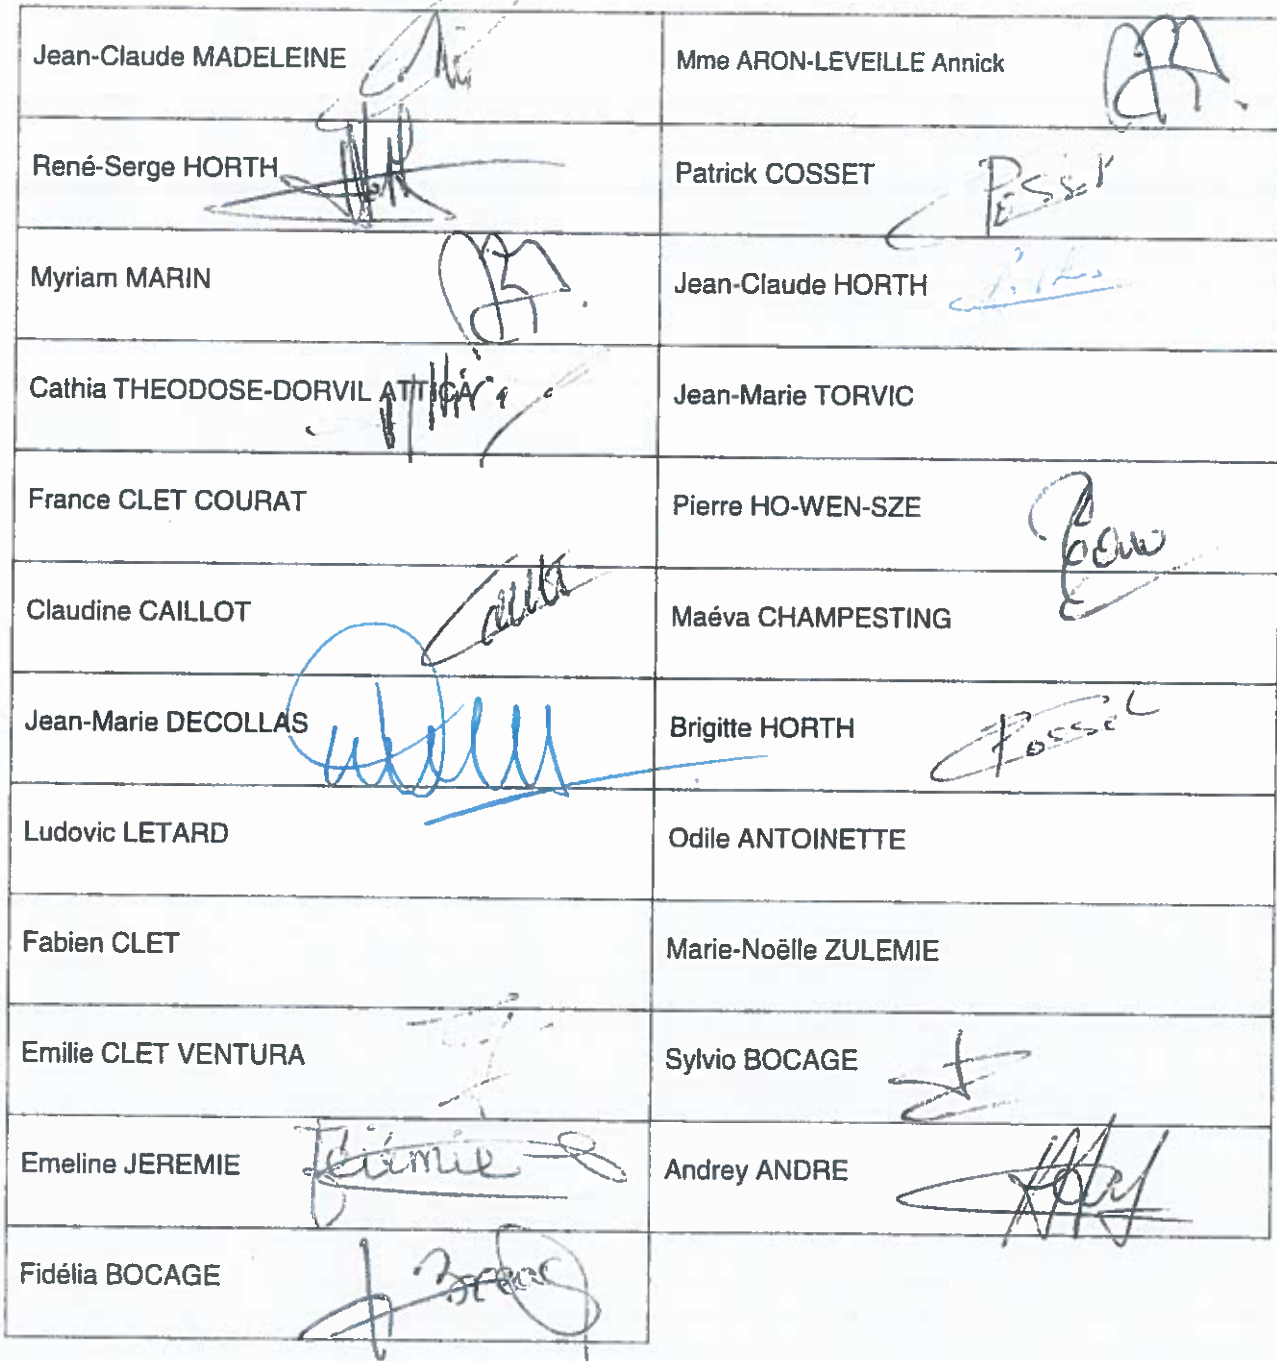 Jean-Claude MADELEINE
Mme ARON-LEVEILLE Annick
René-Serge HORTH
Patrick COSSET
Myriam MARIN
Jean-Claude HORTH
Cathia THEODOSE-DORVIL ATTICA
Jean-Marie TORVIC
France CLET COURAT
Pierre HO-WEN-SZE
Claudine CAILLOT
Maéva CHAMPESTING
Jean-Marie DECOLLAS
Brigitte HORTH
Ludovic LETARD
Odile ANTOINETTE
Fabien CLET
Marie-Noëlle ZULEMIE
Emilie CLET VENTURA
Sylvio BOCAGE
Emeline JEREMIE Jérémie
Andrey ANDRE
Fidélia BOCAGE